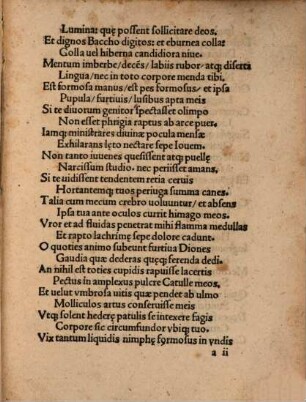 Lumina: quę possent sollicitare deos.
Et dignos Baccho digitos: et eburnea colla:
Golla uel hiberna candidiora niue.
Mentum imberbe/decēs/labiis rubor/atq; diserta
Lingua/nec in toto corpore menda tibi.
Est formosa manus/est pes formosus/et ipsa
Pupula/furtiuis/lusibus apta meis
Si te diuorum genitor spectasset olimpo
Non esset phrigia raptus ab arce puer.
Iamq; ministrares diuina pocula mensæ
Exhilarans lęto nectare sepe Iouem.
Non tanto iuuenes quesissent atq; puellę
Narcissum studio. nec periisset amans.
Si te uidissent tendentem retia ceruis
Hortantemq; tuos periuga summa canes.
Talia cum mecum crebro uoluuntur/et absens
Ipsa tua ante oculos currit himago meos.
Vror et ad fluidas penetrat mihi flamma medullas
Et rapto lachrimę sepe dolore cadunt.
O quoties animo subeunt furtiua Diones
Gaudia quæ dederas queq; ferenda dedi.
An nihil est toties cupidis rapuisse lacertis
Pectus in amplexus pulcre Catulle meos.
Et uelut vmbrosa uitis quæ pendet ab ulmo
Molliculos artus conseruisse meis
Vtq; solent hederę patulis se intexere fagis
Corpore sic circumfundor vbiq; tuo.
Vix tantum liquidis nimphę formosus in vndis
a ii